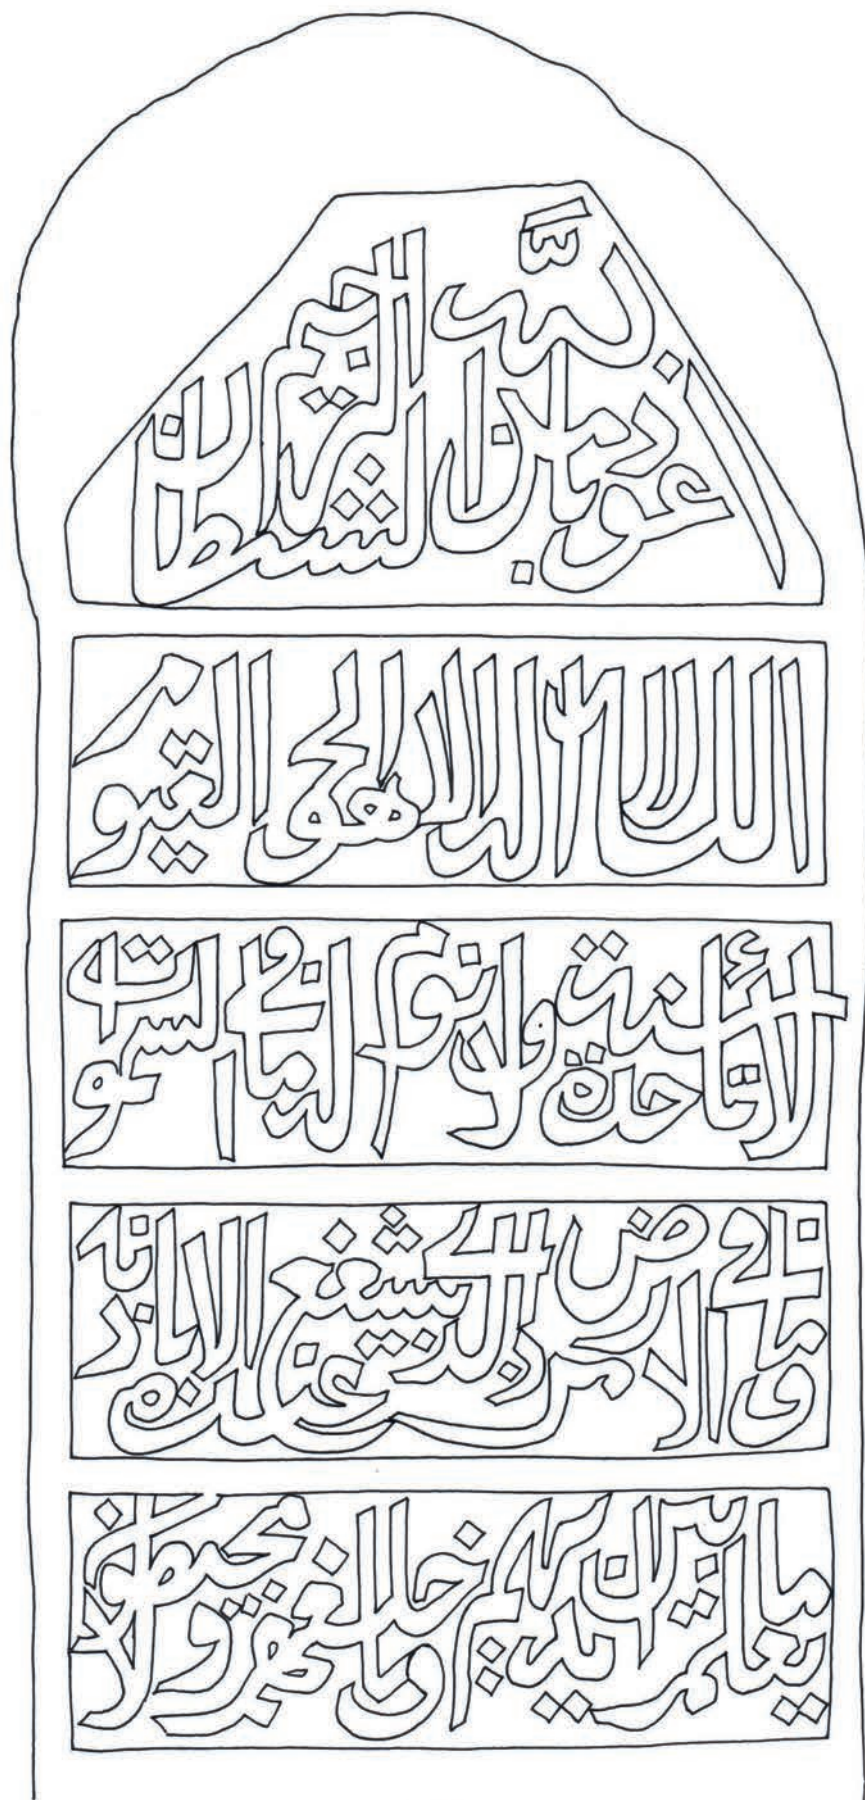 أعوذ بالله من الشيطان الرجيم
الله لا اله الا هو الحي القيوم
لا تأخذه سنة ولا نوم له ما في السموات
وما في الارض من ذا الذي يشفع عنده الا باذنه
يعلم ما بين ايديهم وما خلفهم ولا يحيطون